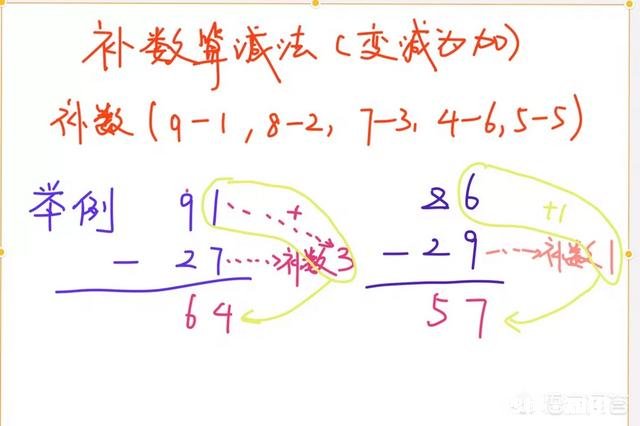 补数算减法(变减为加)
补数(9-1,8-2,7-3,4-6,5-5)
举例 91 + 86 +1
- 27 补数3 - 29 补数1
64 57
悟空问答